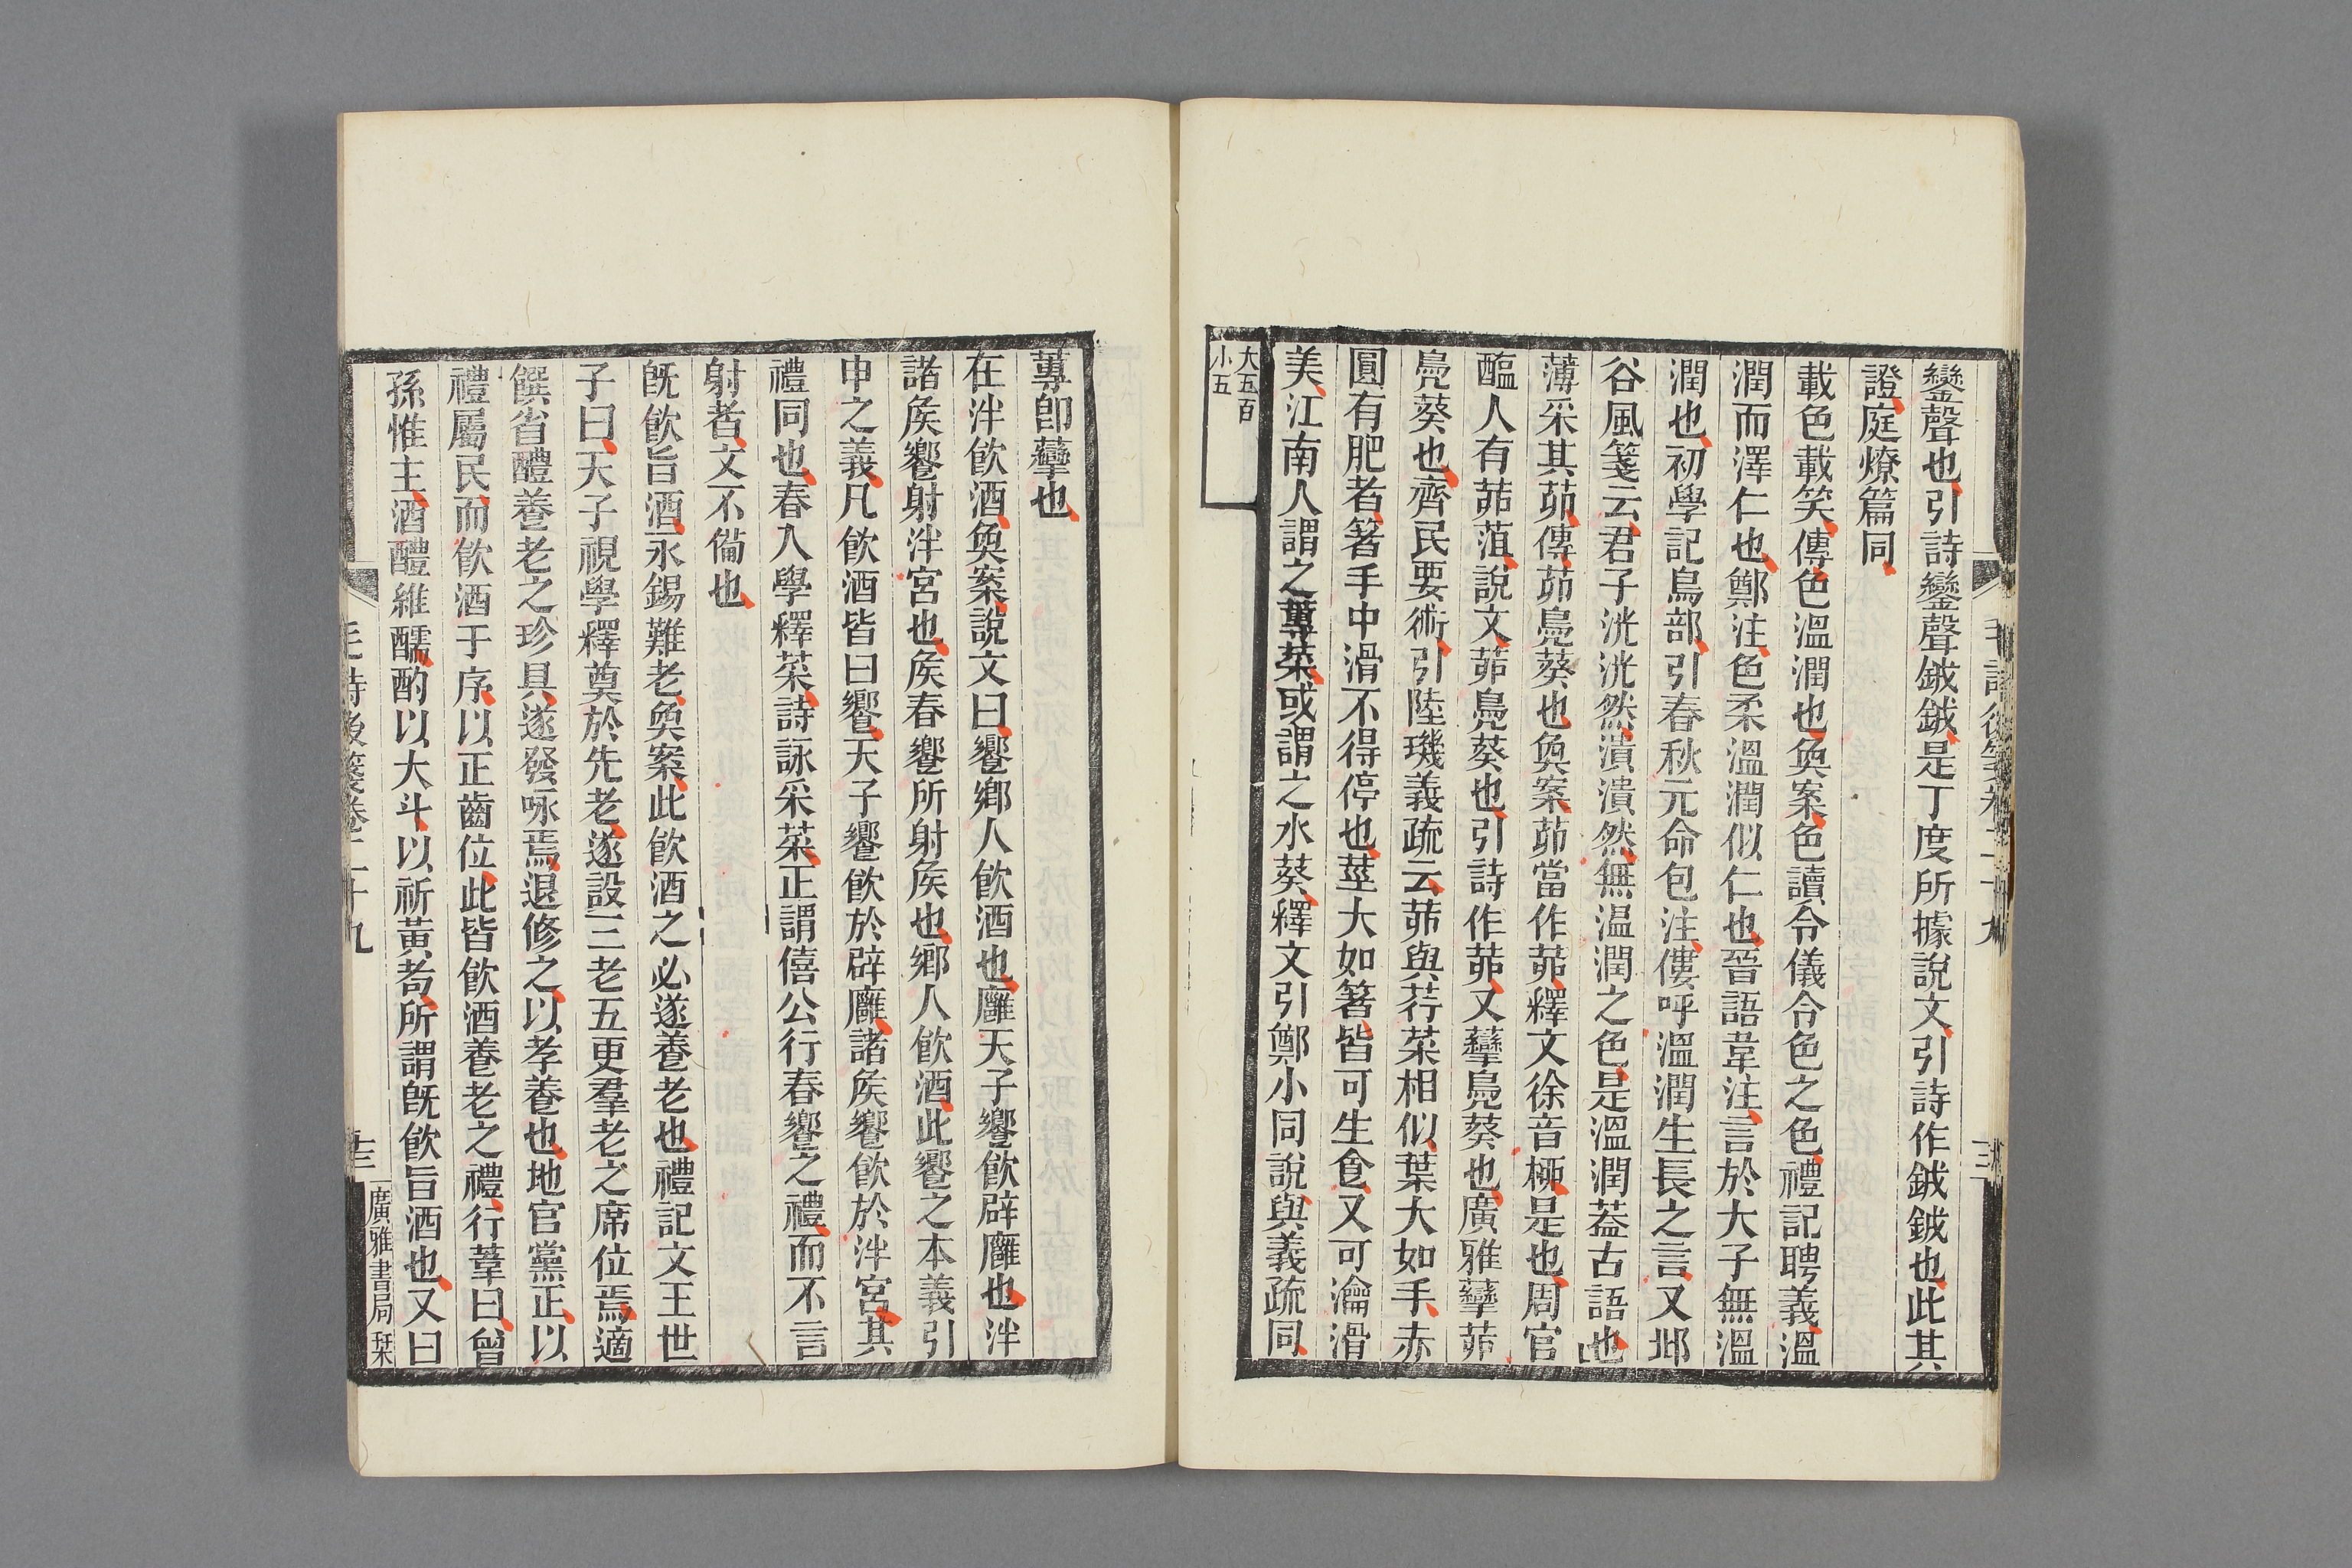 鑾聲也引詩鑾聲鉞鉞是丁度所據說文引詩作鉞鉞也此其
證庭燎篇同
載色載笑傳色溫潤也奐案色讀令儀令色之色禮記聘義溫
潤而澤仁也鄭注色柔溫潤似仁也晉語韋注言於大子無溫
潤也初學記鳥部引春秋元命包注僂呼溫潤生長之言又邶
谷風箋云君子洸洸然潰潰然無温潤之色是溫潤葢古語也
薄采其茆傳茆鳧葵也奐案茆當作茆釋文徐音柳是也周官
醢人有茆菹說文茆鳧葵也引詩作茆又虊鳧葵也廣雅虊茆
鳧葵也齊民要術引陸璣義疏云茆與荇菜相似葉大如手赤
圓有肥者箸手中滑不得停也莖大如箸皆可生食又可瀹滑
美江南人謂之蓴菜或謂之水葵釋文引鄭小同說與義疏同
大五百
小五
蓴卽虊也
在泮飲酒奐案說文曰饗鄉人飲酒也廱天子饗飲辟廱也泮
諸矦饗射泮宮也矦春饗所射矦也鄉人飲酒此饗之本義引
申之義凡飲酒皆曰饗天子饗飲於辟廱諸矦饗飲於泮宮其
禮同也春入學釋菜詩詠采菜正謂僖公行春饗之禮而不言
射者文不僃也
旣飲旨酒永錫難老奐案此飲酒之必遂養老也禮記文王世
子曰天子視學釋奠於先老遂設三老五更羣老之席位焉適
饌省醴養老之珍具遂發咏焉退修之以孝養也地官黨正以
禮屬民而飲酒于序以正齒位此皆飲酒養老之禮行葦曰曾
孫惟主酒醴維醹酌以大斗以祈黃耇所謂旣飲旨酒也又曰
毛詩後箋卷二十九
廣雅書局栞